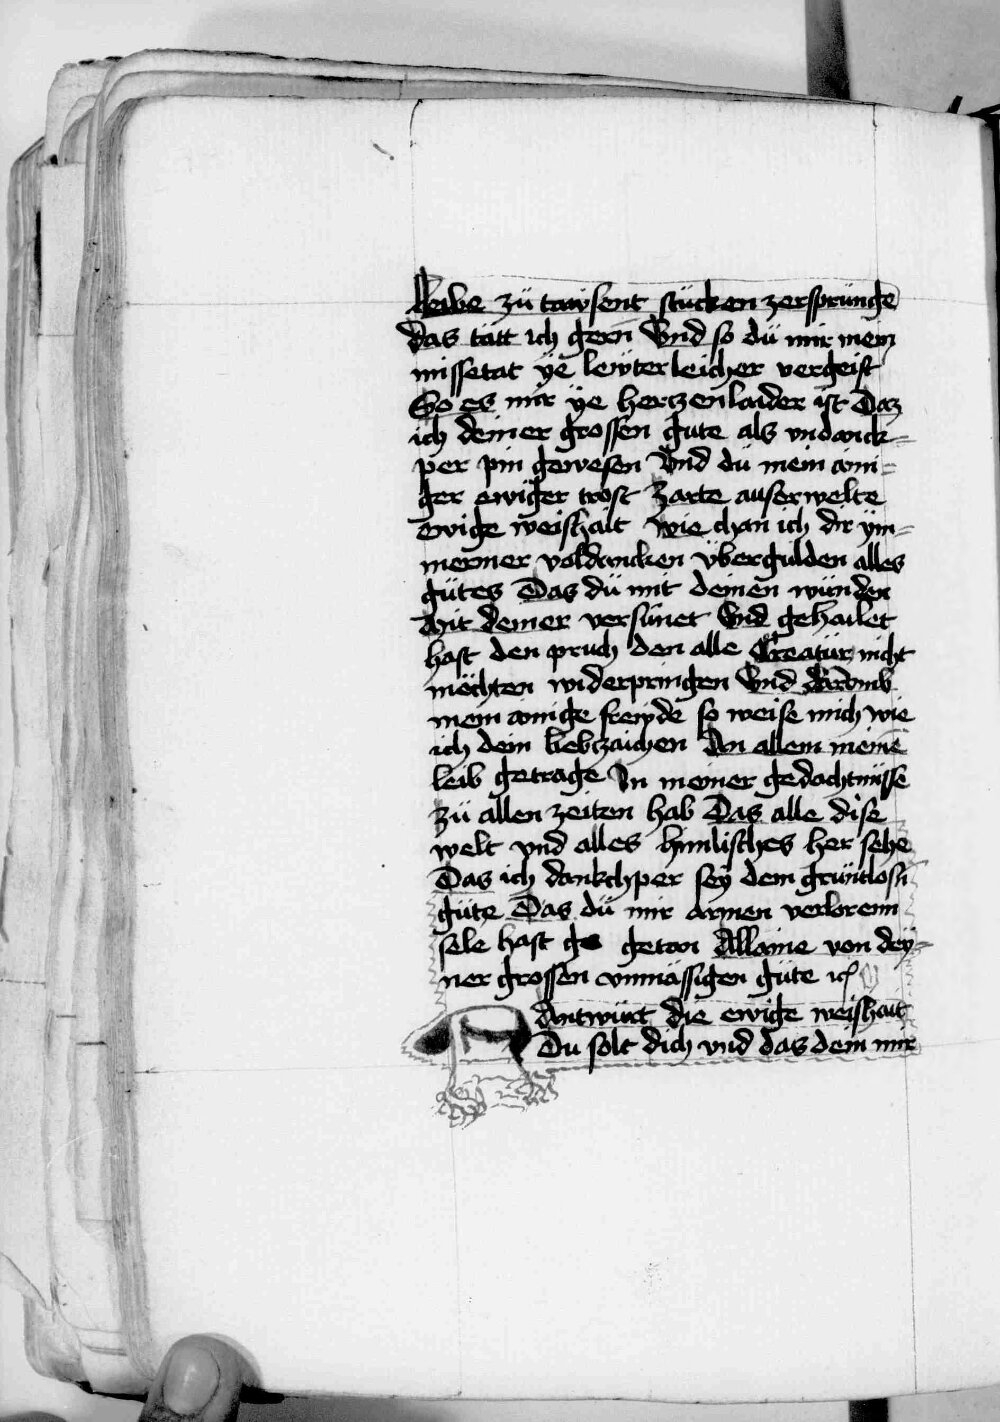 leibe zü tawsent stücken zersprünge
das tätt ich gern Vnd so dü mir mein
missetat ye lewterleicher vergeist
So es mir ye herczenlaider ist Daz
ich deiner grossen gute als vndanck-
per pin gewesen Vnd dü mein aini-
ger ewiger trost zarte auserwelte
ewige weishait wie chan ich dir ym-
mermer voldancken übergulden alles
gütes Das dü mit deinen wünden
mit deiner versünet Vnd gehailet
hast den pruch den alle Creatür nicht
möchten widerpringen Vnd darumb
mein ainige frewde so weise mich wie
ich dein liebzaichen An allem meinē
leib getrage In meiner gedachtnüsse
zü allen zeiten hab Das alle dise
welt vnd alles himlisches her sehe
Das ich dankchper sey dem grüntlosn
güte Das dü mir armen verlorenn
sele hast ge getan Allaine von dey-
ner grossen vnmässigen güte ꝛc
Antwürt die ewige weishait
Du solt dich vnd das dein mir